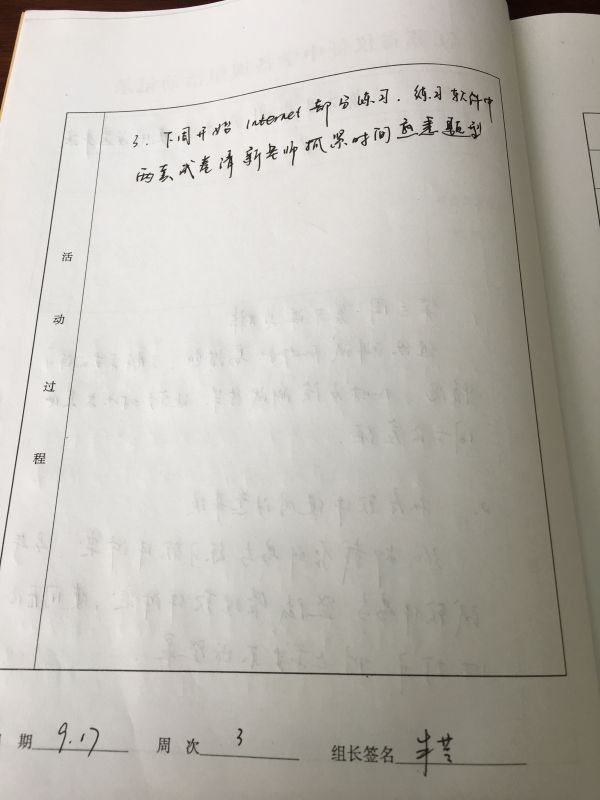 3. 下周开始 internet 部分练习. 练习软件中
两套试卷请新老师抓紧时间熟悉题型
活
动
过
程
期 9.17 周 次 3 组长签名 朱芸